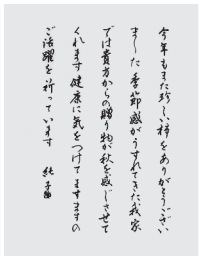 今年もまた珍しい柿をありがとうござい
ました 季節感がうすれてきた我家
では貴方からの贈り物が秋を感じさせて
くれます 健康に気をつけてますますの
ご活躍を祈っています
純子